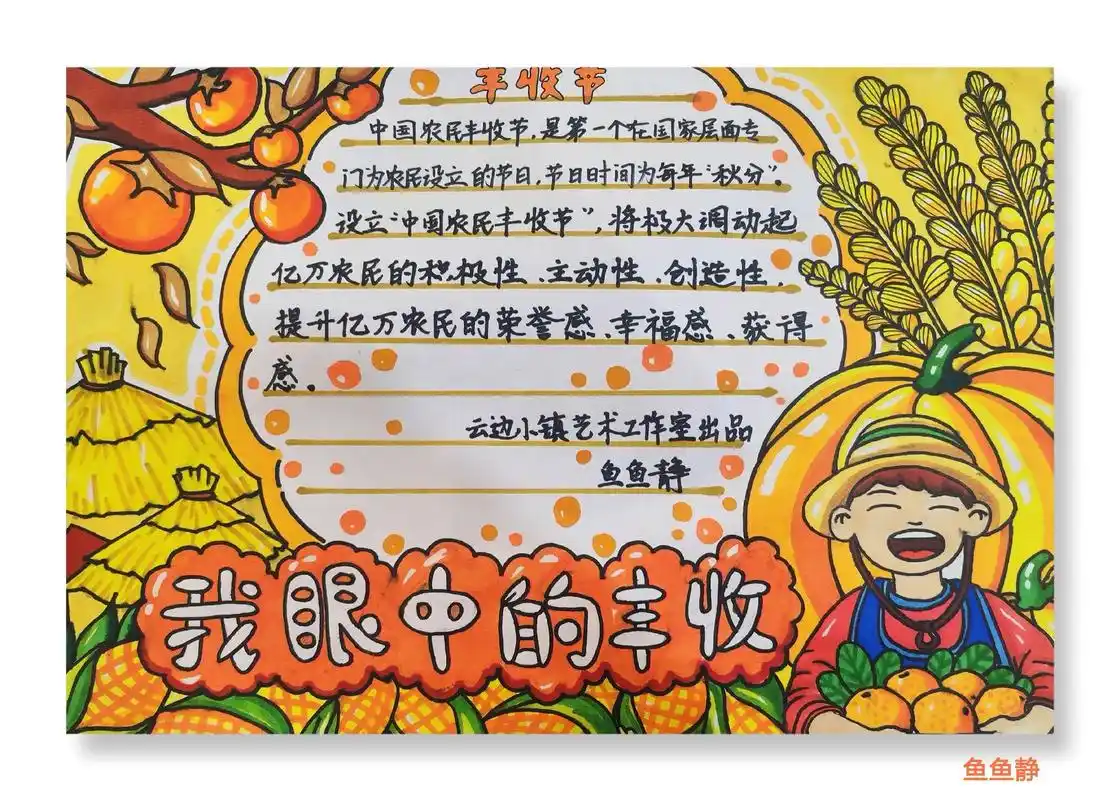 丰收节
中国农民丰收节,是第一个在国家层面专
门为农民设立的节日,节日时间为每年“秋分”。
设立“中国农民丰收节”,将极大调动起
亿万农民的积极性、主动性、创造性,
提升亿万农民的荣誉感、幸福感、获得
感。
云边小镇艺术工作室出品
鱼鱼静
我眼中的丰收
鱼鱼静